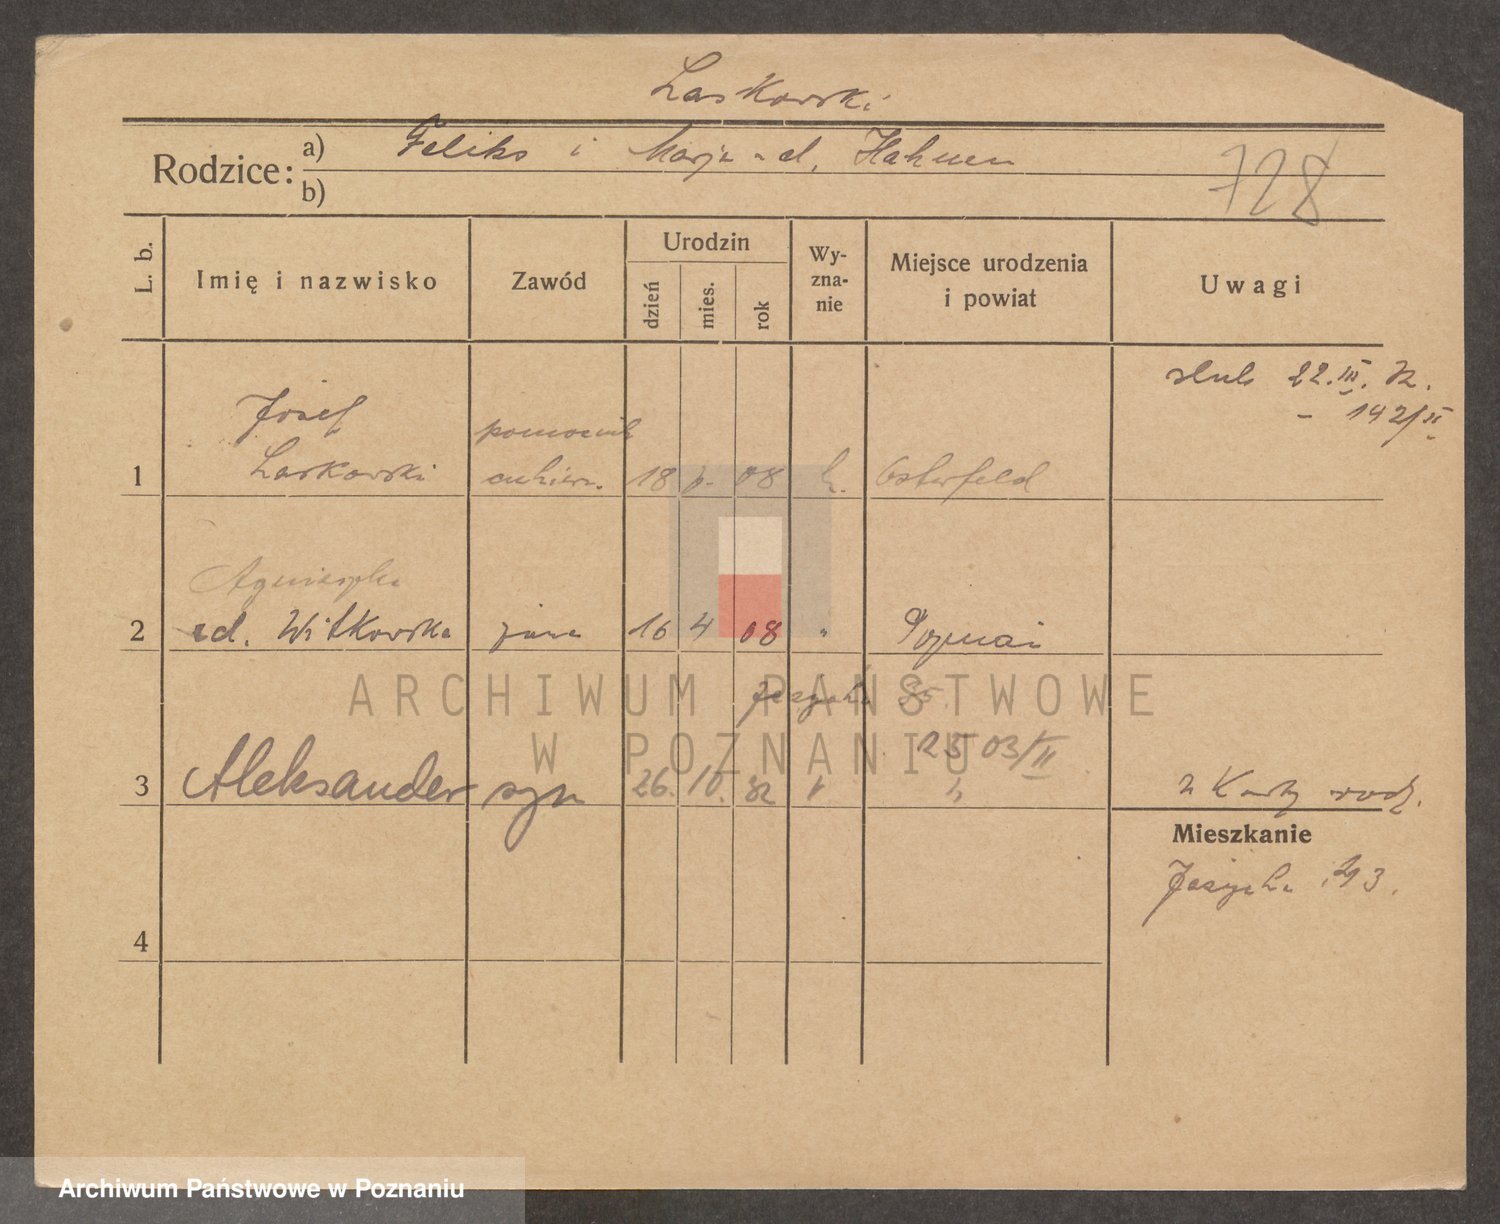 Laskowski
Rodzice: a) Feliks i Marja z d. Hahnen
b)
728
L. b.
Imię i nazwisko
Zawód
Urodzin
dzień
mies.
rok
Wy-
zna-
nie
Miejsce urodzenia
i powiat
Uwagi
ślub 22.III. 32.
- 142/II
Józef
Laskowski
pomocnik
cukiern.
1
18
08
Osterfeld
Agnieszka
2 zd. Witkowska żona 16 4 08 " Poznań
Jeżycka
3 Aleksander syn 26. 10. 32
z Karty rodz.
Mieszkanie
Jeżycka 43.
4
ARCHIWUM PAŃSTWOWE
W POZNANIU
Archiwum Państwowe w Poznaniu